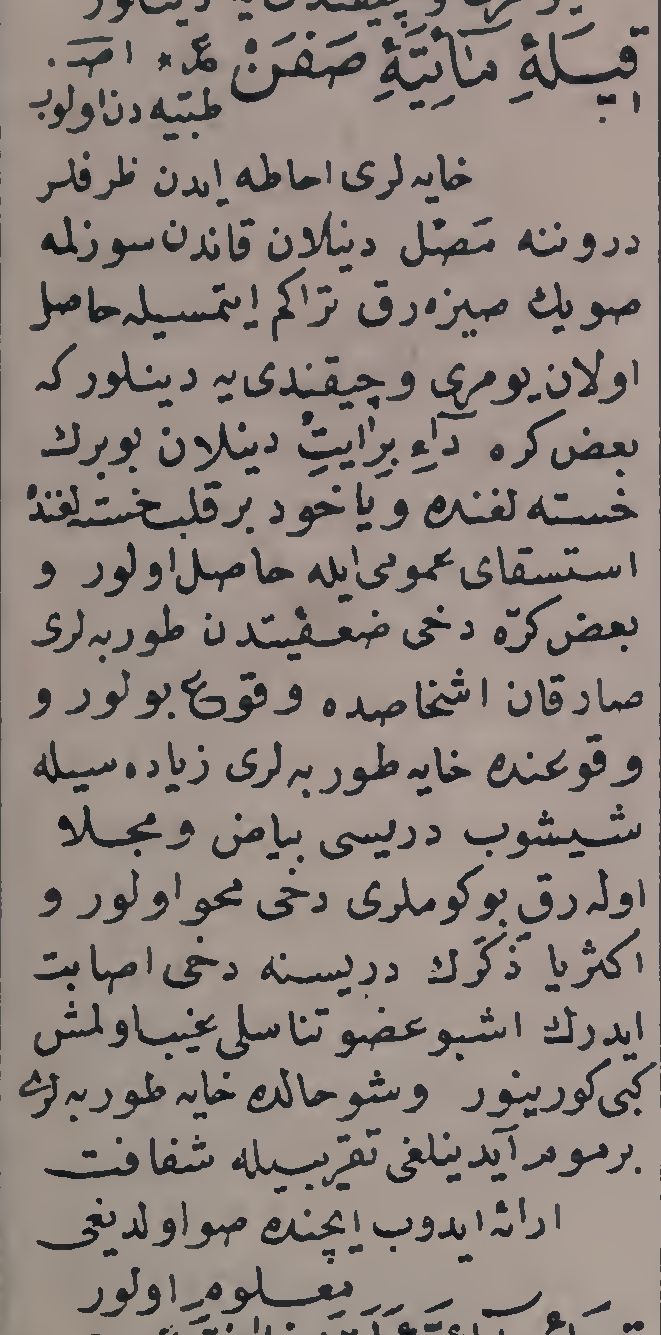 قِيلَهٔ مَائِيَّهٔ صَفَنْ عم٭ اصـ.
طبيه دن اولوب
خايه لرى احاطه ايدن ظرفلر
دروننه متصل دينلان قاندن سوزلمه
صويك صيزه رق تراكم ايتمسيله حاصل
اولان يومرى و چيقندى يه دينلور كه
بعض كره دَآءِ بِرَايتْ دينلان بوبرك
خسته لغنده و ياخود بر قلب خسته لغنده
استسقاى عمومى ايله حاصل اولور و
بعض كرّه دخى ضعفيتدن طوربه لرى
صارقان اشخاصده وقوع بولور و
وقوعنده خايه طوربه لرى زياده سيله
شيشوب دريسى بياض و مجلا
اوله رق بوكوملرى دخى محو اولور و
اكثريا ذَكَرك دريسنه دخى اصابت
ايدرك اشبو عضو تناسلى غيب اولمش
كبى كورينور و شو حالده خايه طوربه لرى
بر موم آيدينلغى تقريبيله شفافت
ارائه ايدوب ايچنده صو اولديغى
معلوم اولور